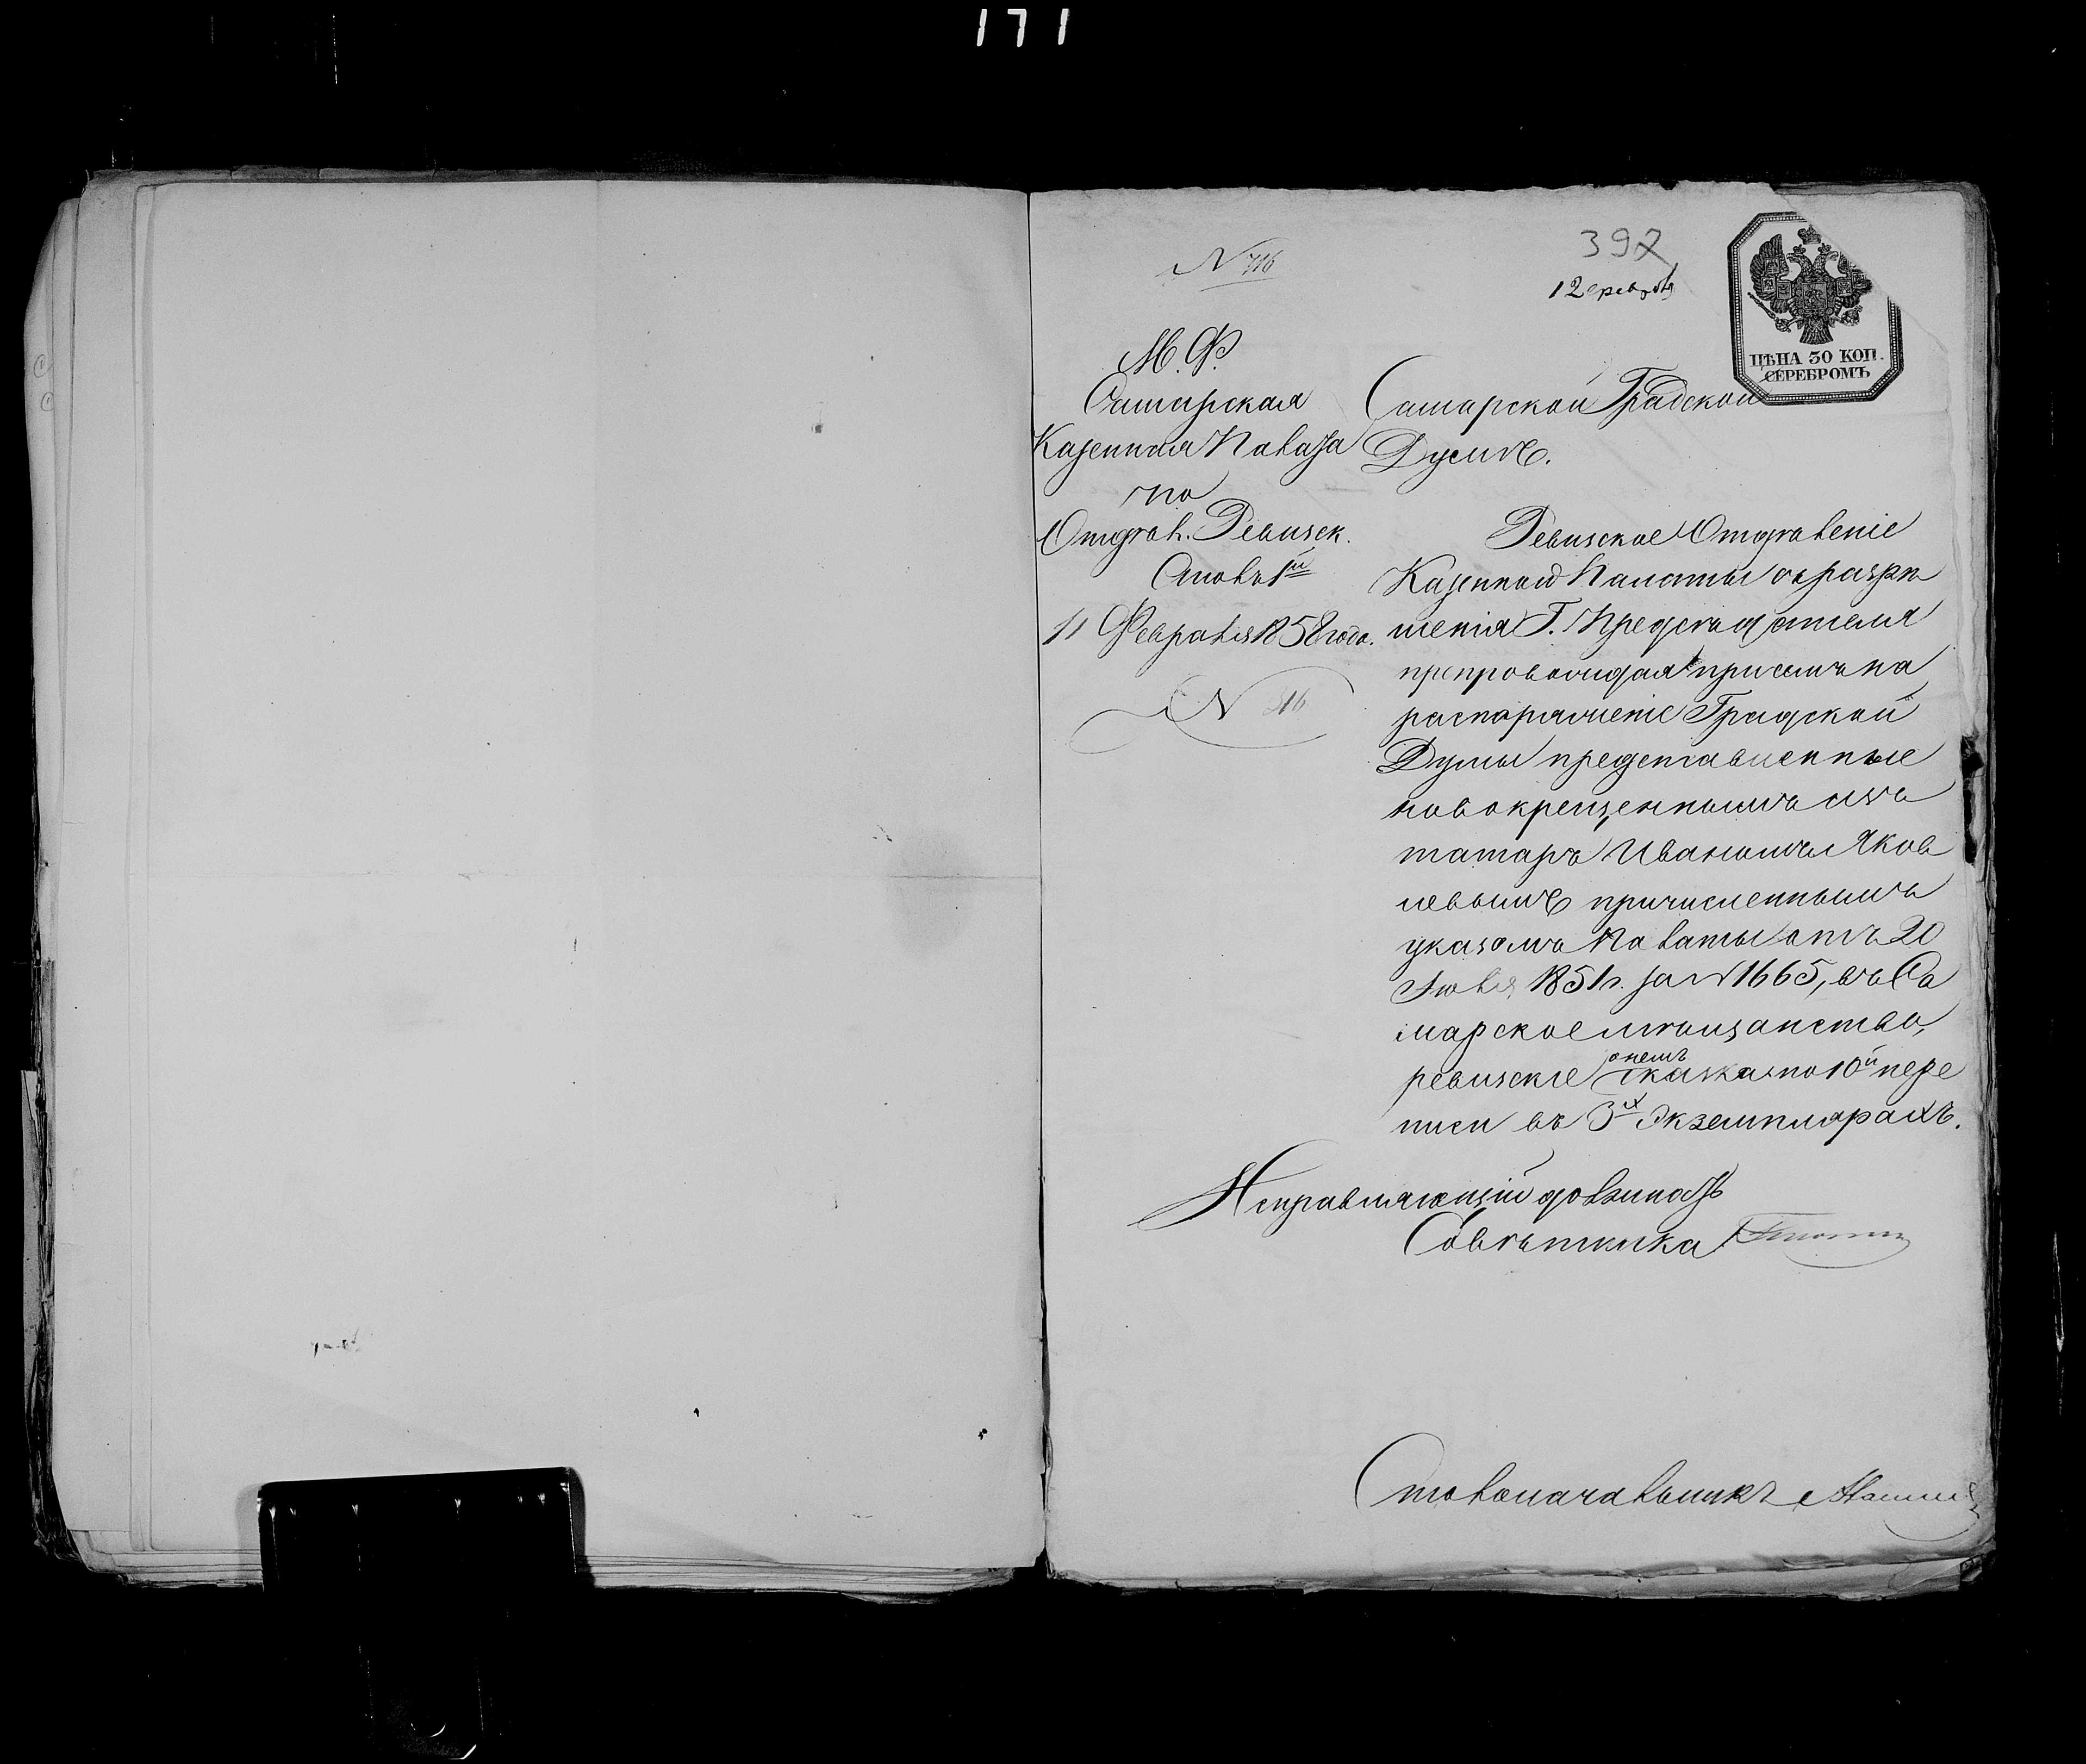 171
N 716
397
12 февраля
ЦѢНА 30 КОП.
СЕРЕБРОМЪ
М. Ф.
Самарская
Казенная Палата
по
Отдѣл. Ревизск.
Столъ 1й
11 Февраля 1858 года.
N 316
Самарской Градской
Думѣ.
Ревизское Отдѣленіе
Казенной Палаты съ разрѣ
шенія Г. Предсѣдателя
препровождая при семъ на
распоряженіе Градской
Думы представленные
новокрещеннымъ изъ
татаръ Иваномъ Яков
левымъ причисленнымъ
указомъ Палаты отъ 20
Іюля 1851 г. за N 1665, въ Са
марское мѣщанство,
ревизскіе о немъ сказка по 10й пере
писи въ 3х экземплярахъ.
Исправляющій должность
Совѣтника
Столоначальникъ